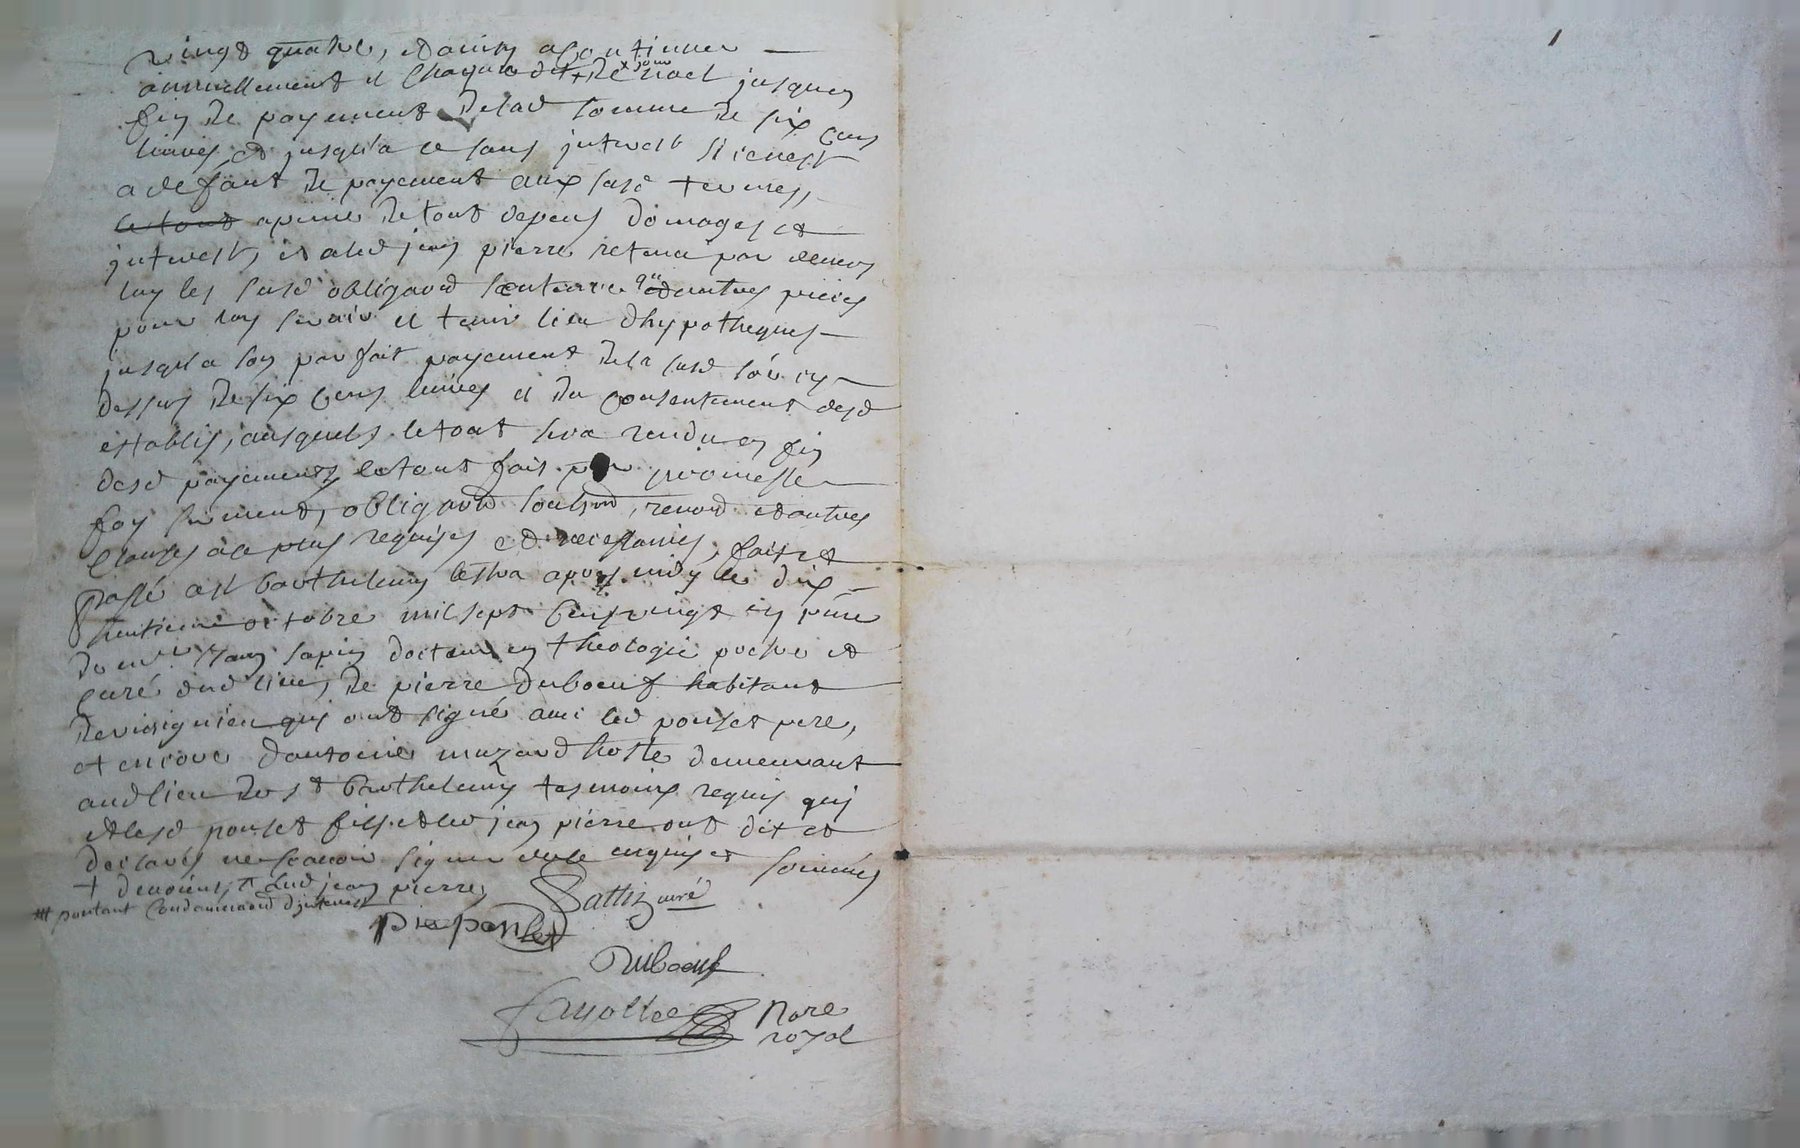 vingt quatre, et ainsy a continuer
annuellement et chaque dit + de x jour noel jusques
fin de payement de lad somme de six cens
livres, et jusqu'a ce sans interest si ce nest
a defaut de payement aux susd termes,
le tout a peine de tout depens domages et
interest, et aled jean pierre retenu par devers
luy les susd obligaõn sentence et autres pieces
pour luy servir et tenir lieu d'hypotheques
jusqu'a son parfait payement de la susd soe cy
dessus de six cens livres et du consentement desd
establis, ausquels le tout sera rendu en fin
desd payements, le tout fait par promesse
foy serment, obligaõn soubmõn, renoõn et autres
clauses a ce plus requises et necessaires, fait et
passé a st barthelemy lestra apres midy le dix
huitieme octobre mil sept cens vingt en pñce
de mre Jean sapin docteur en theologie prebre et
curé dud lieu, de pierre duboeuf habitant
de virignieu qui ont signé avec led ponset pere,
et encore d'antoine mazard hoste demeurant
aud lieu de st barthelemy tesmoins requis qui
et lesd ponset fils et led jean pierre ont dit et
declarés ne scavoir signer de ce enquis et sommés
+ denoient, π dud jean pierre,
### portant condamnaõn d'interest
curé
p ponset
Duboeuf
fayolle nore
royal